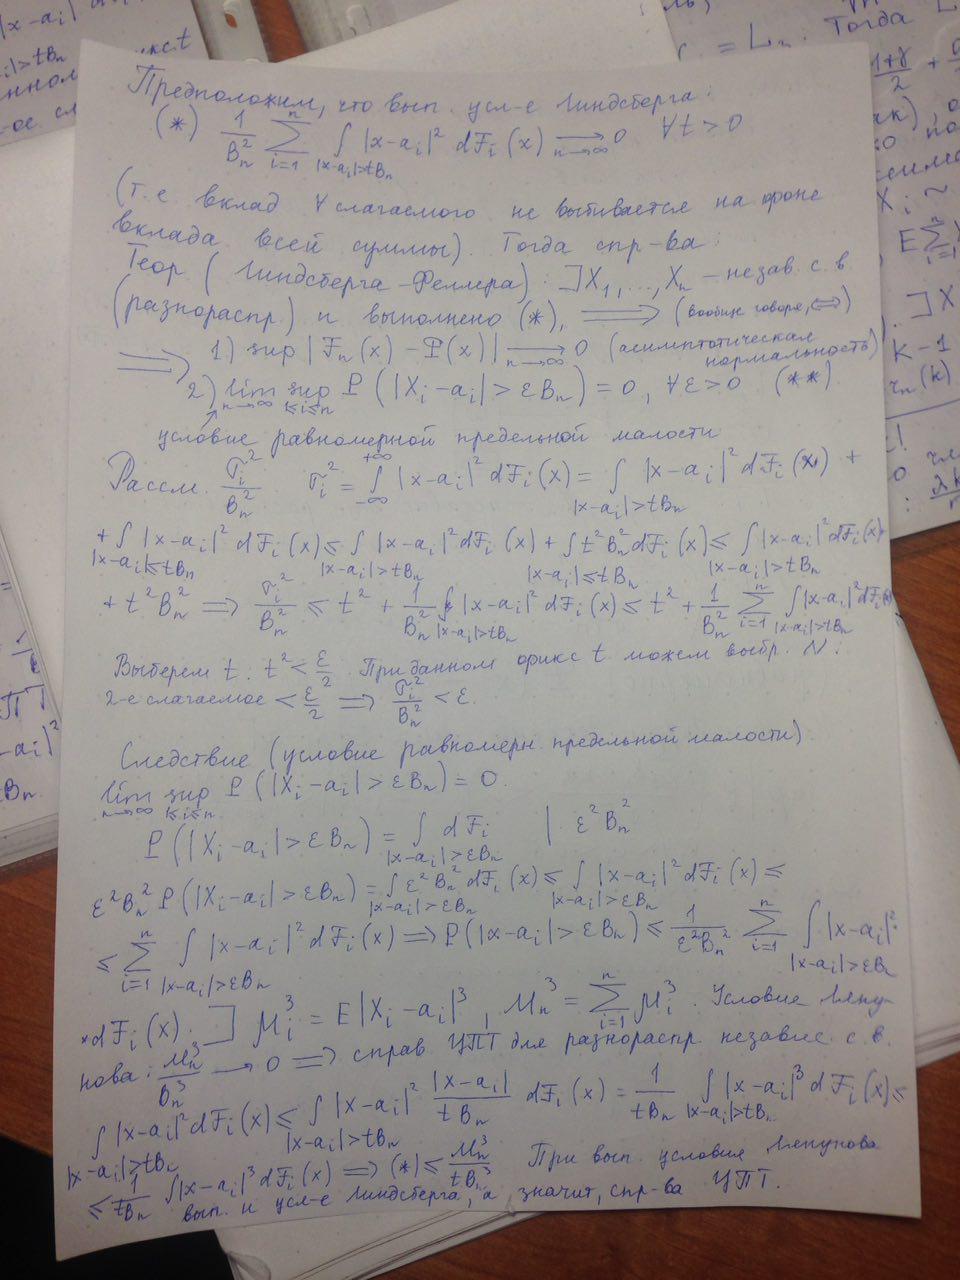 Предположим, что вып. усл-е Линдсберга:
(*) 1/B_n^2 ∑_{i=1}^n ∫_{|x-a_i|>tB_n} |x-a_i|^2 dF_i(x) →_{n→∞} 0 ∀t>0
(т.е вклад ∀ слагаемого не выбивается на фоне
вклада всей суммы). Тогда спр-ва:
Теор (Линдсберга-Феллера): ]X_1,...,X_n – незав. с.в
(разнораспр.) и выполнено (*), ⟹ (вообще говоря, ⟺)
⟹ 1) sup|F_n(x) - Φ(x)| →_{n→∞} 0 (асимптотическая нормальность)
2) lim_{n→∞} sup_{1≤i≤n} P(|X_i-a_i|>εB_n) = 0, ∀ε>0 (**)
условие равномерной предельной малости
Рассм. σ_i^2/B_n^2 σ_i^2 = ∫_{-∞}^{+∞} |x-a_i|^2 dF_i(x) = ∫_{|x-a_i|>tB_n} |x-a_i|^2 dF_i(x) +
+ ∫_{|x-a_i|≤tB_n} |x-a_i|^2 dF_i(x) ≤ ∫_{|x-a_i|>tB_n} |x-a_i|^2 dF_i(x) + ∫_{|x-a_i|≤tB_n} t^2 B_n^2 dF_i(x) ≤ ∫_{|x-a_i|>tB_n} |x-a_i|^2 dF_i(x) +
+ t^2 B_n^2 ⟹ σ_i^2/B_n^2 ≤ t^2 + 1/B_n^2 ∫_{|x-a_i|>tB_n} |x-a_i|^2 dF_i(x) ≤ t^2 + 1/B_n^2 ∑_{i=1}^n ∫_{|x-a_i|>tB_n} |x-a_i|^2 dF_i(x)
Выберем t: t^2 < ε/2. При данном фикс t можем выбр. N:
2-е слагаемое < ε/2 ⟹ σ_i^2/B_n^2 < ε.
Следствие (условие равномерн. предельной малости)
lim_{n→∞} sup_{1≤i≤n} P(|X_i-a_i|>εB_n) = 0.
P(|X_i-a_i|>εB_n) = ∫_{|x-a_i|>εB_n} dF_i | ε^2 B_n^2
ε^2 B_n^2 P(|X_i-a_i|>εB_n) = ∫_{|x-a_i|>εB_n} ε^2 B_n^2 dF_i(x) ≤ ∫_{|x-a_i|>εB_n} |x-a_i|^2 dF_i(x) ≤
≤ ∑_{i=1}^n ∫_{|x-a_i|>εB_n} |x-a_i|^2 dF_i(x) ⟹ P(|x-a_i|>εB_n) ≤ 1/ε^2B_n^2 ∑_{i=1}^n ∫_{|x-a_i|>εB_n} |x-a_i|^2
* dF_i(x). ] μ_i^3 = E|X_i-a_i|^3, M_n^3 = ∑_{i=1}^n μ_i^3. Условие Ляпу-
нова: M_n^3/B_n^3 → 0 ⟹ справ ЦПТ для разнораспр. независ. с.в.
∫_{|x-a_i|>tB_n} |x-a_i|^2 dF_i(x) ≤ ∫_{|x-a_i|>tB_n} |x-a_i|^2 |x-a_i|/tB_n dF_i(x) = 1/tB_n ∫_{|x-a_i|>tB_n} |x-a_i|^3 dF_i(x) ≤
≤ 1/tB_n ∫|x-a_i|^3 dF_i(x) ⟹ (*) ≤ M_n^3/tB_n^3 При вып. условие Ляпунова
вып. и усл-е Линдсберга, а значит, спр-ва ЦПТ.